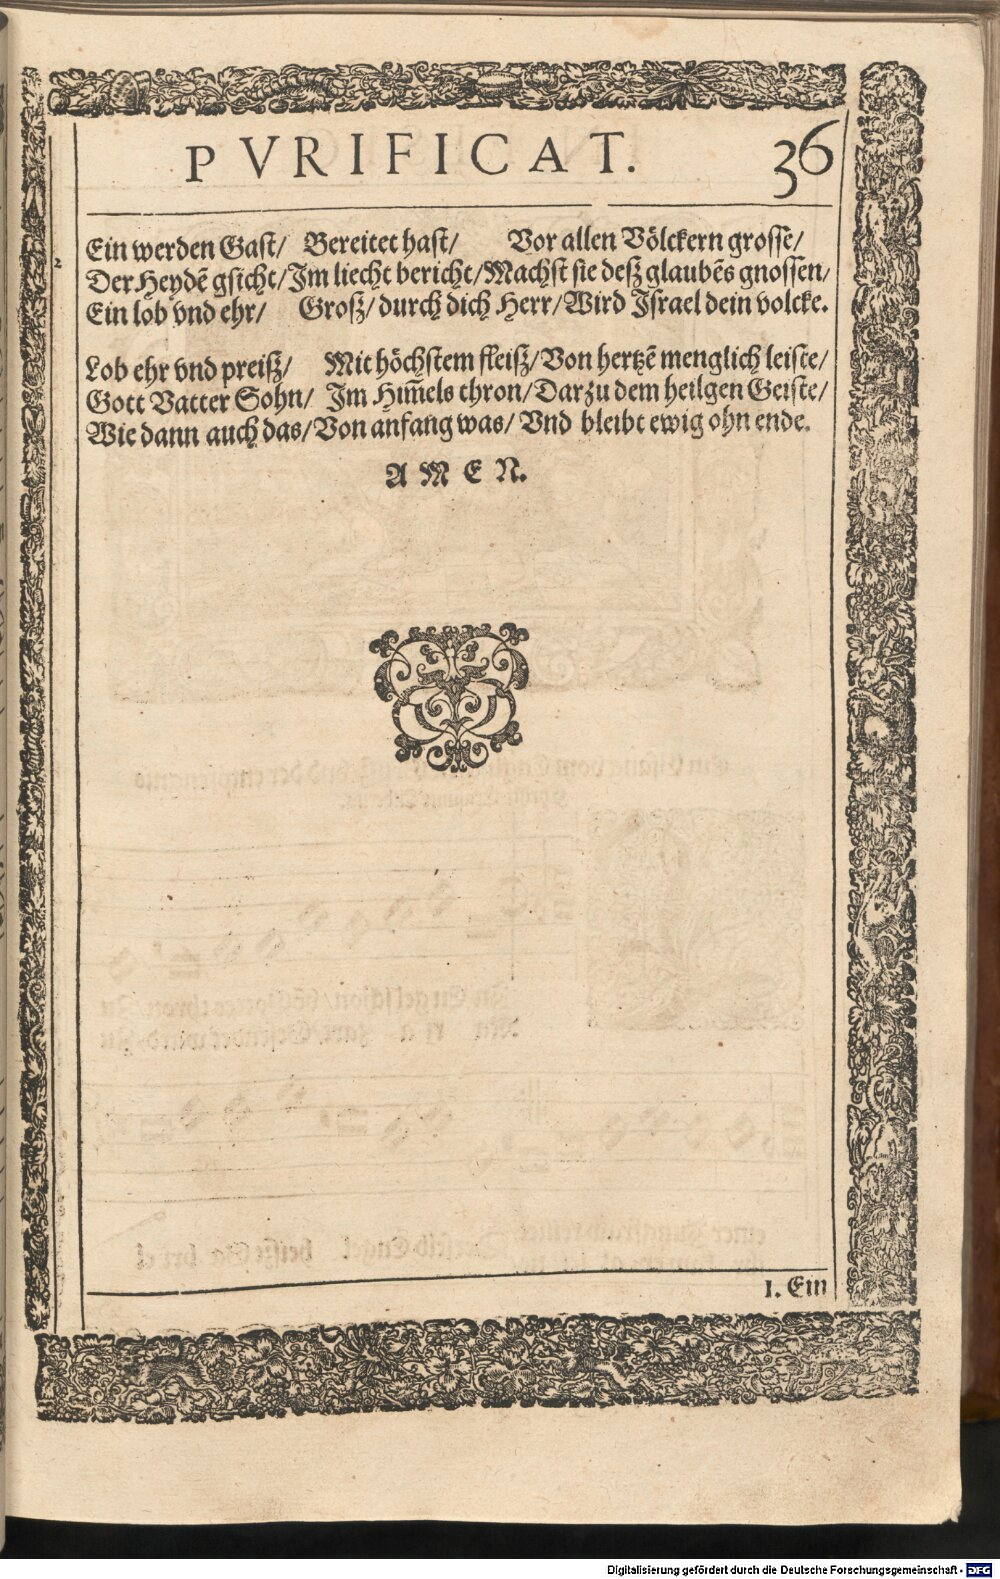 PVRIFICAT. 36
Ein werden Gast/ Bereitet hast/ Vor allen Völckern grosse/
Der Heydē gsicht/ Im liecht bericht/ Machst sie desz glaubēs gnossen/
Ein lob vnd ehr/ Grosz/ durch dich Herr/ Wird Israel dein volcke.
Lob ehr vnd preisz/ Mit höchstem fleisz/ Von hertzē menglich leiste/
Gott Vatter Sohn/ Im Him̄els thron/ Darzu dem heilgen Geiste/
Wie dann auch das/ Von anfang was/ Vnd bleibt ewig ohn ende.
AMEN.
1. Ein
Digitalisierung gefördert durch die Deutsche Forschungsgemeinschaft - DFG